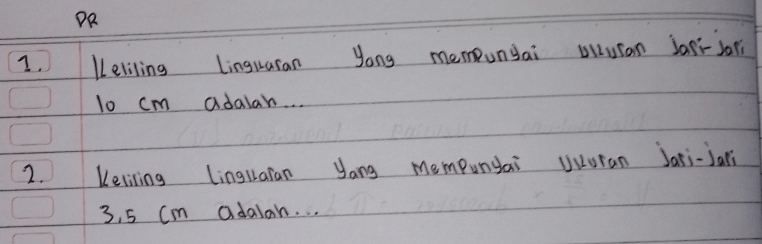 PR
1. Keliling lingkaran yang mempunyai ukuran jari-jari
10 cm adalah...
2. Keliling lingkaran yang mempunyai ukuran jari-jari
3,5 cm adalah...